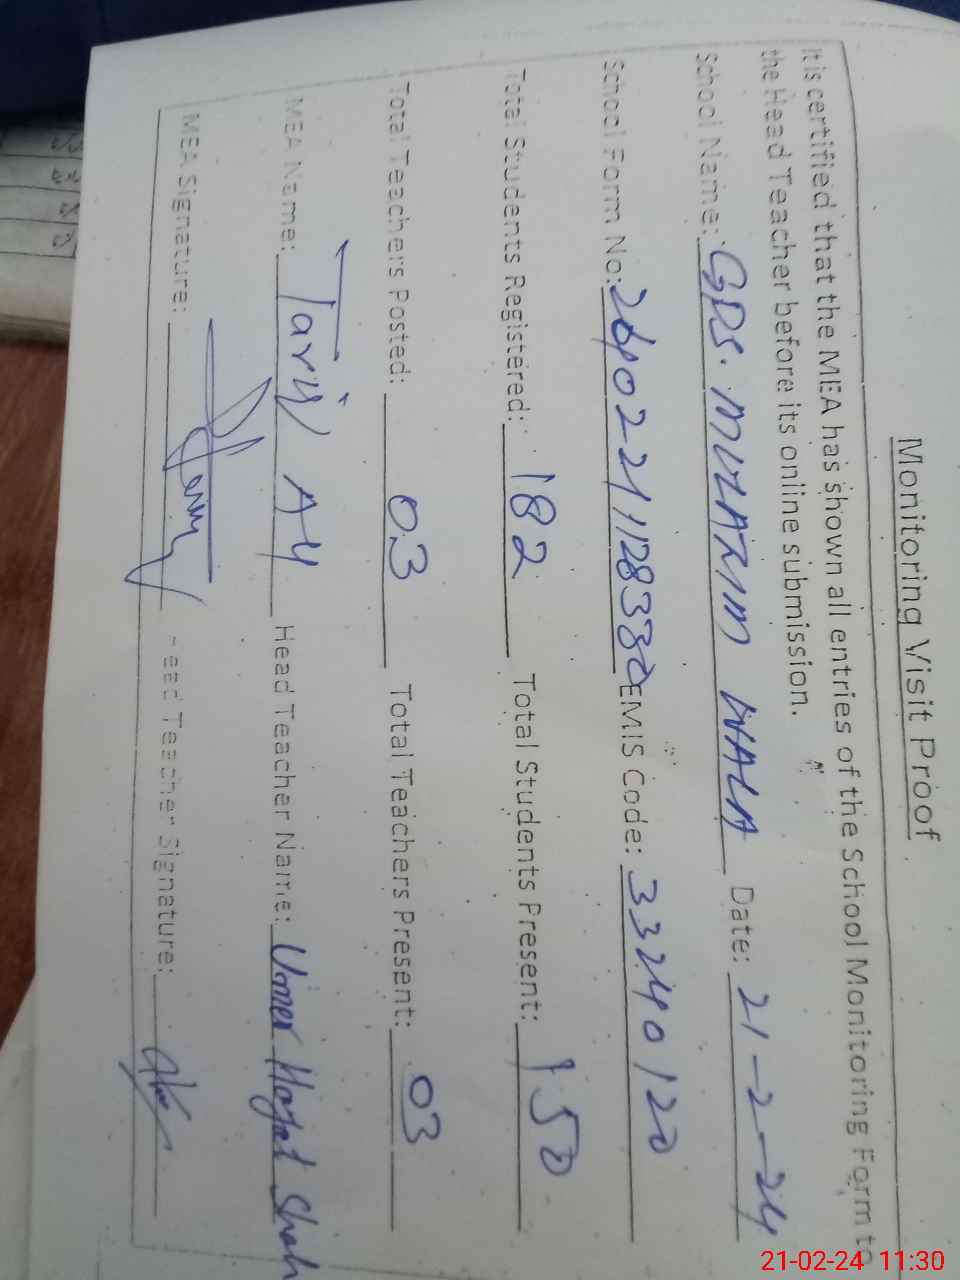 Monitoring Visit Proof
It is certified that the MEA has shown all entries of the School Monitoring Form to
the Head Teacher before its online submission.
School Name: GPS. MUZARIM WALA Date: 21-2-24
School Form No: EMIS Code: 33240120
Total Students Registered: 182 Total Students Present: 150
Total Teachers Posted: 03 Total Teachers Present: 03
MEA Name: Tariq Ali Head Teacher Name: Umer Hayat Shah
MEA Signature: Head Teacher Signature:
21-02-24 11:30